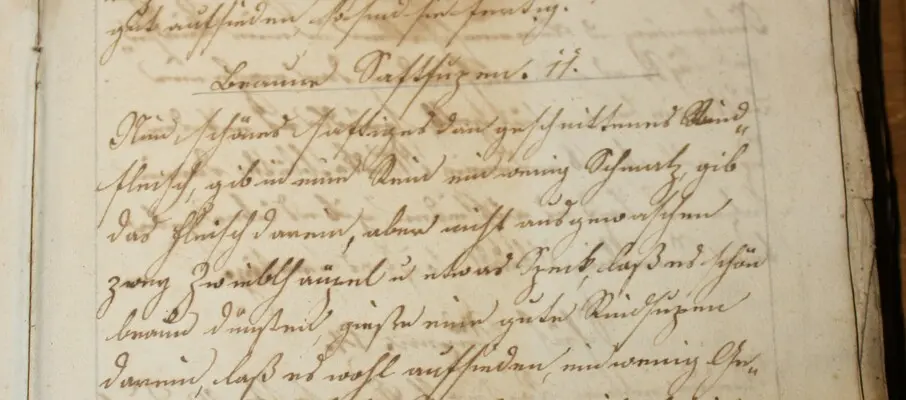 gut aufsieden, so sind sie fertig.
Braune Saftsupen. 11.
Nim schönes saftiges dan geschnittenes Rind-
fleisch, gib in eine Rein ein wenig Schmalz, gib
das Fleisch darein, aber nicht ausgewaschen
zwey Zwieblhäupel u etwas Speck, laß es schön
braun dünsten, gieße eine gute Rindsupen
darein, laß es wohl aufsieden, ein wenig Ge-